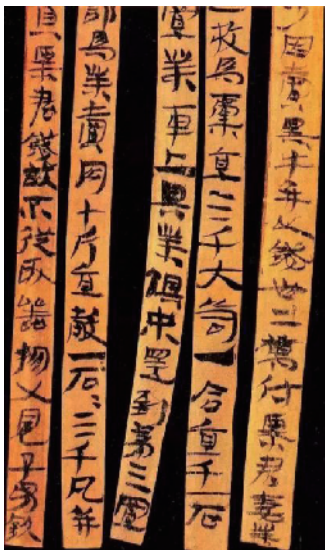 少因賣黑牛并以錢卅二萬付粟君妻業
一枚為橐直三千大笥一合直千一石
置業車上與業俱來還到第三置
部為業賣肉十斤直穀一石=三千凡并
負粟君錢故不從取器物又恩子男欽